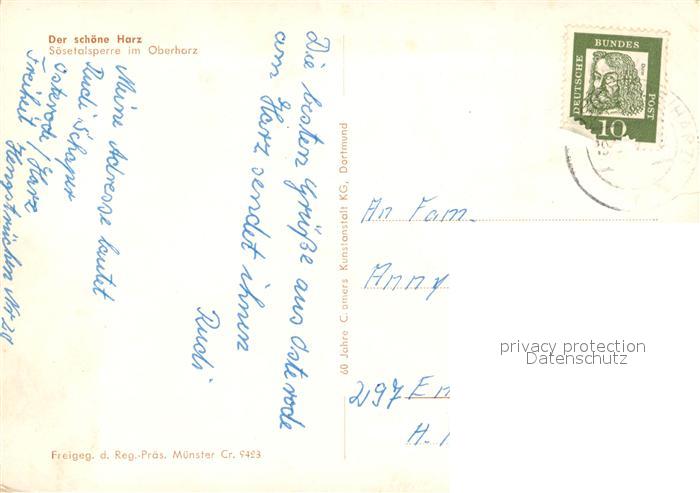 Der schöne Harz
Sösetalsperre im Oberharz
Die besten Grüße aus Osterode
am Harz sendet ihnen
Rudi
Meine Adresse lautet
Rudi Schaper
Osterode/Harz
Freiheit
Hengstrücken Nr 20
60 Jahre Cramers Kunstanstalt KG, Dortmund
DEUTSCHE
BUNDES
POST
Dürer
10
An Fam.
Anny
297 Em
H.
privacy protection
Datenschutz
Freigeg. d. Reg.-Präs. Münster Cr. 9423